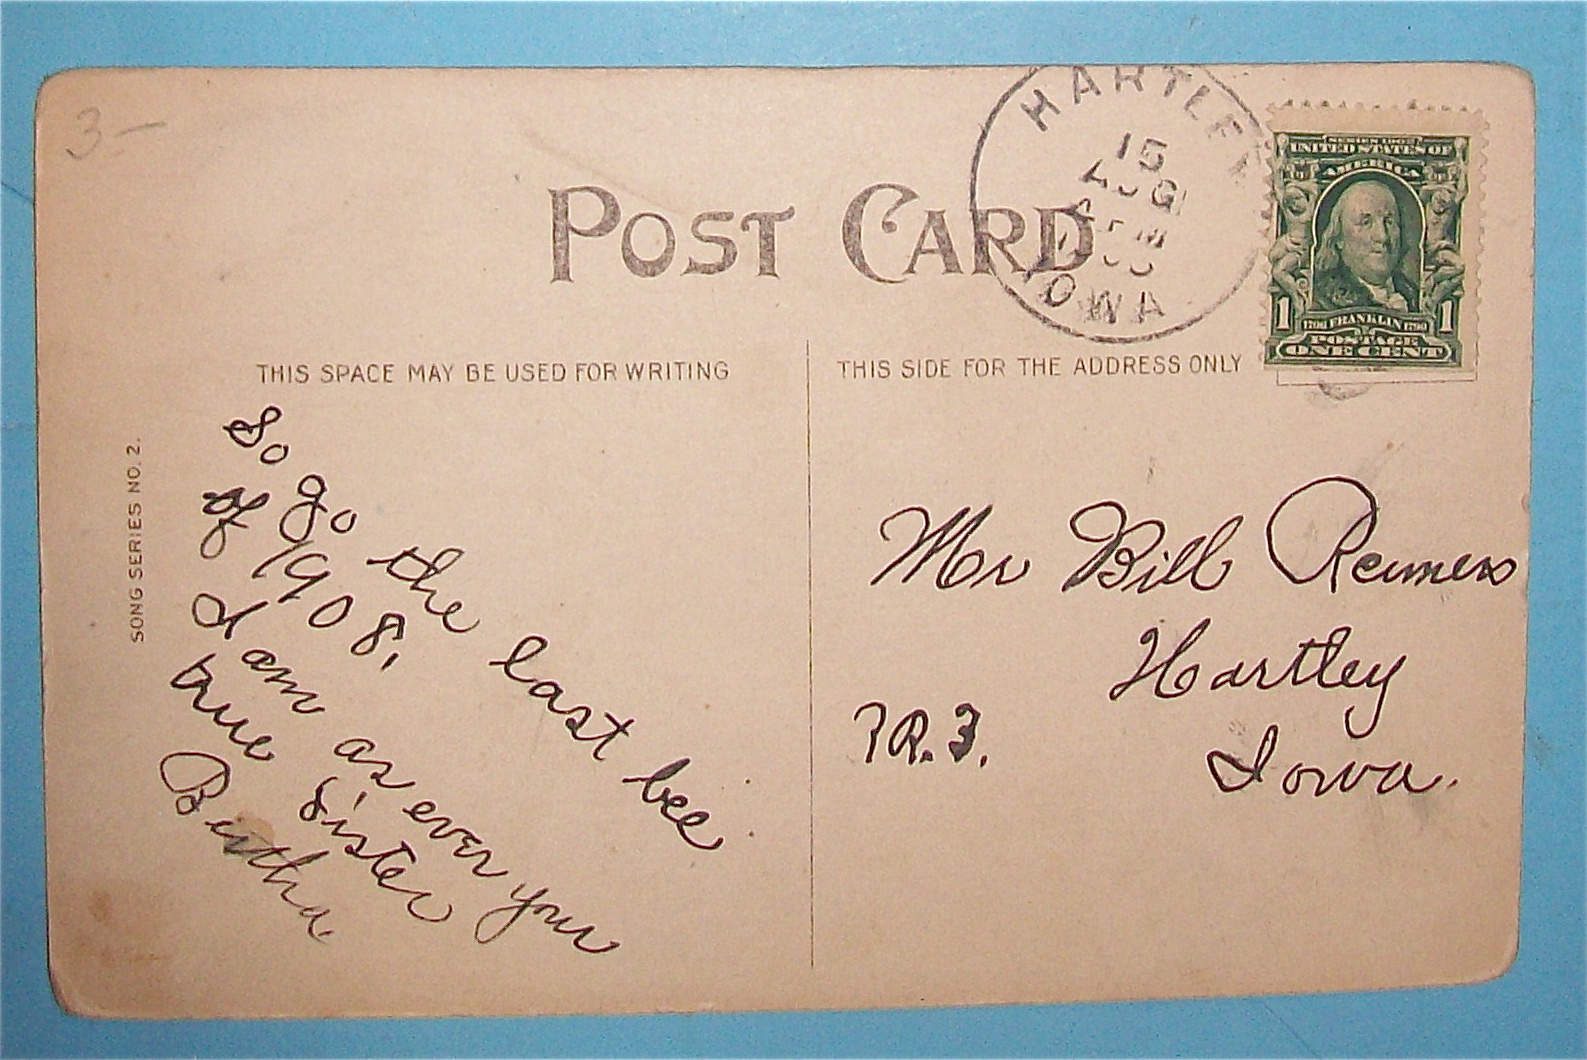 3-
POST CARD
HARTLEY
15
AUG
IOWA
SERIES 1902
UNITED STATES OF
AMERICA
1 1706 FRANKLIN 1790 1
POSTAGE
ONE CENT
THIS SPACE MAY BE USED FOR WRITING
THIS SIDE FOR THE ADDRESS ONLY
SONG SERIES NO. 2.
So go the last bee
of 1908.
I am as ever your
true Sister
Bertha.
Mr Bill Reimers
Hartley
R. 3.
Iowa.